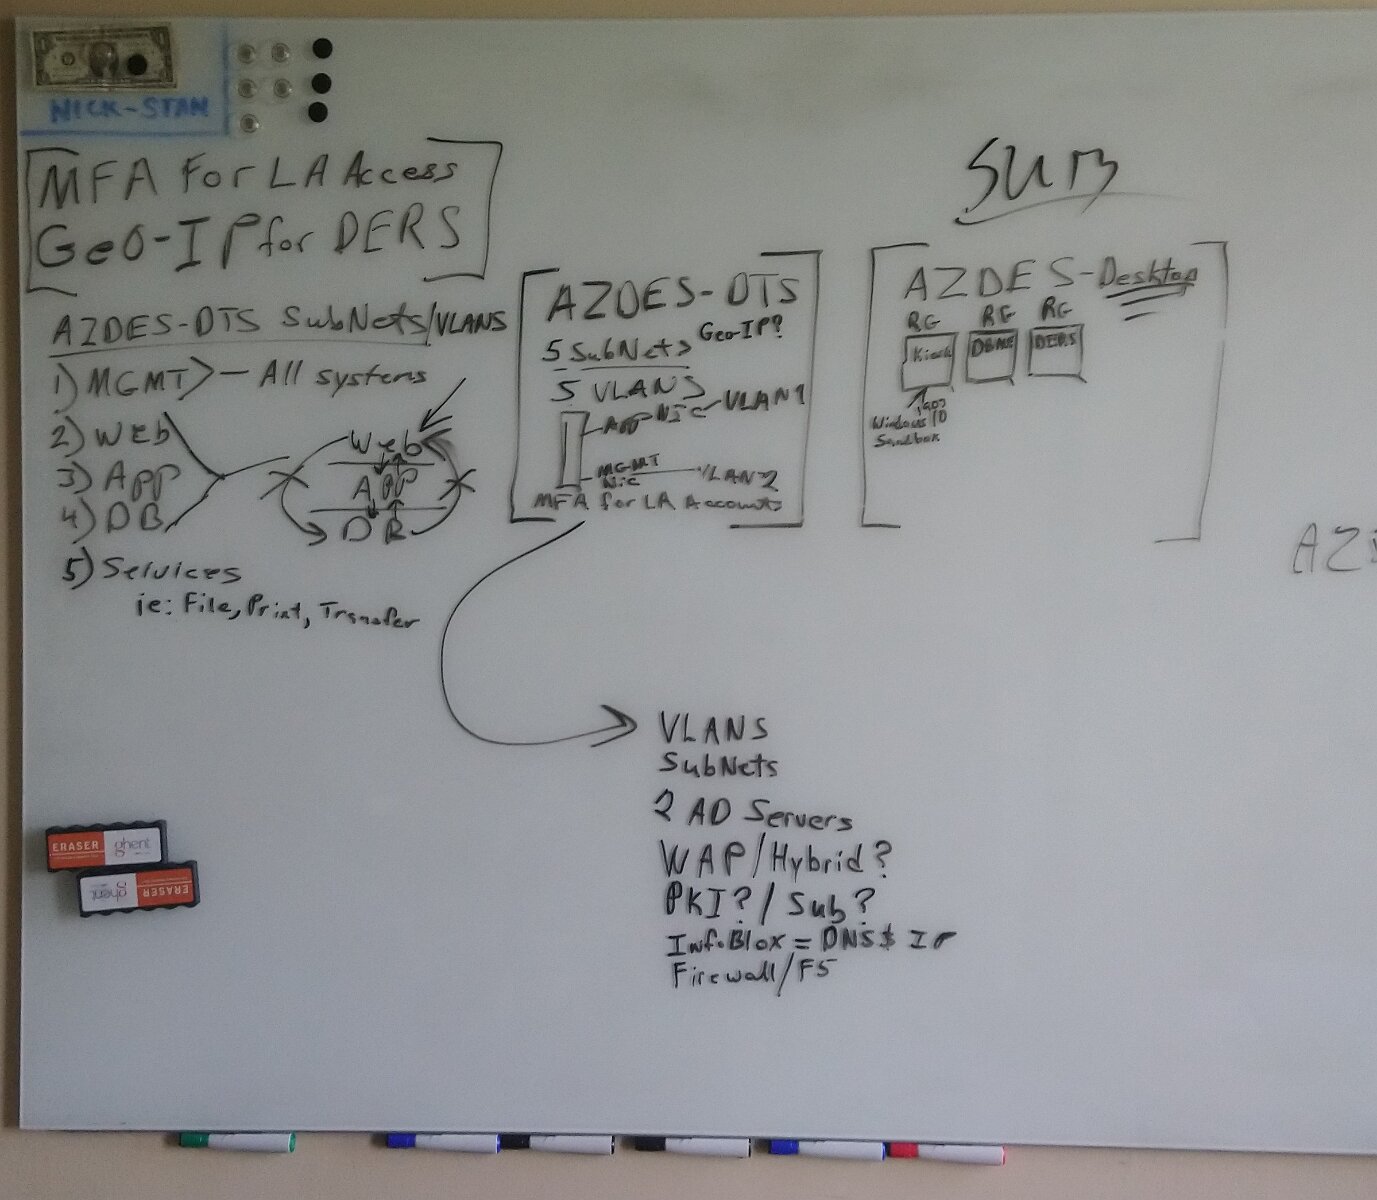 NICK-STAN
MFA For LA Access
Geo-IP for DERS
AZDES-DTS SubNets/VLANS
1) MGMT - All systems
2) Web
3) App
4) DB
5) Services
ie: File, Print, Transfer
Web
APP
DB
AZDES-DTS
Geo-IP?
5 SubNets
5 VLANS
App Nic VLAN1
MGMT
Nic VLAN2
MFA for LA Accounts
SUB
AZDES-Desktop
RG RG RG
Kiosk DBME DERS
Windows 10
Sandbox
VLANS
SubNets
2 AD Servers
WAP/Hybrid?
PKI?/Sub?
InfoBlox = DNS $ IP
Firewall/F5
ERASER ghent
ghent ERASER